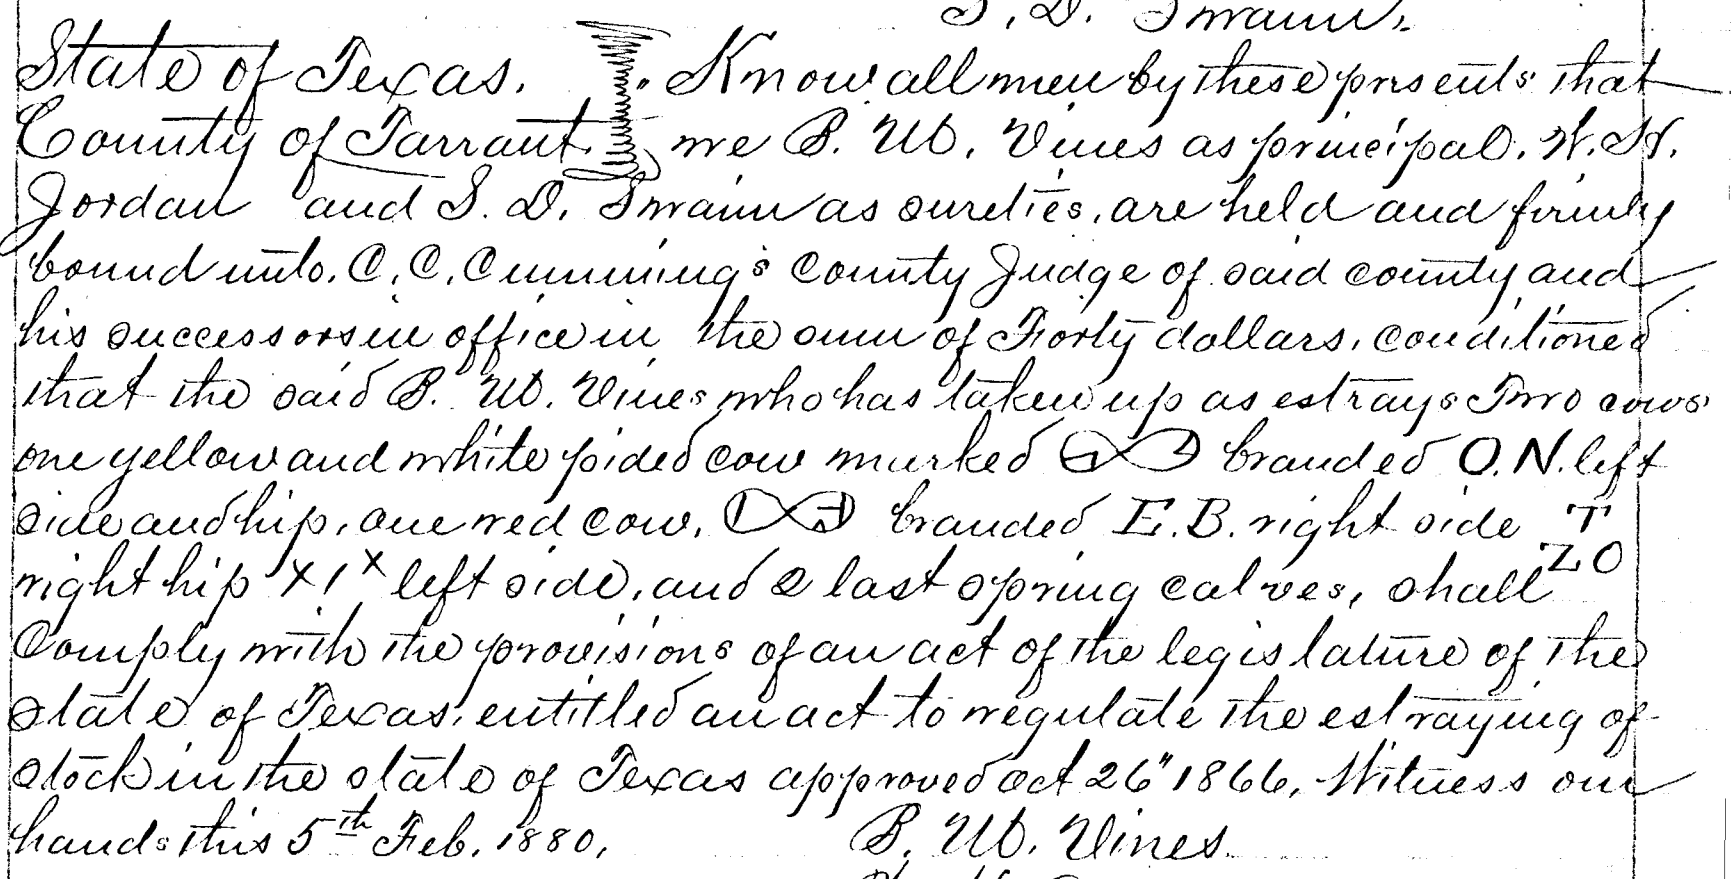 S. D. Swann.
State of Texas. Know all men by these presents that
County of Tarrant. we B. W. Vines as principal. W. H.
Jordan and S. D. Swann as sureties, are held and firmly
bound unto. C. C. Cummings County Judge of said county and
his successors in office in the sum of Forty dollars, conditioned
that the said B. W. Vines who has taken up as estrays Two cows
one yellow and white pided cow murked branded O.N. left
side and hip, one red cow, branded E.B. right side T
ZO
right hip X1X left side, and 2 last spring calves, shall
Comply with the provisions of an act of the legislature of the
state of Texas, entitled an act to regulate the estraying of
stock in the state of Texas approved Oct 26" 1866, Witness our
hands this 5th Feb. 1880, B. W. Vines